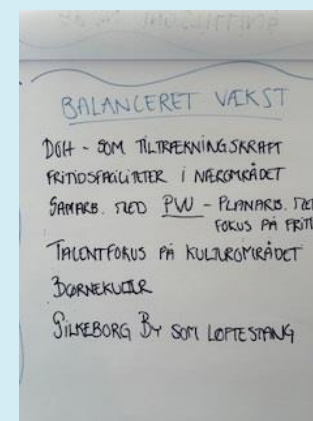 BALANCERET VÆKST
DGH - SOM TILTRÆKNINGSKRAFT
FRITIDSFACILITETER I NÆROMRÅDET
SAMARB. MED PUU - PLANARB. MED
FOKUS PÅ FRITI
TALENTFOKUS PÅ KULTUROMRÅDET
BØRNEKULTUR
SILKEBORG BY SOM LØFTESTANG